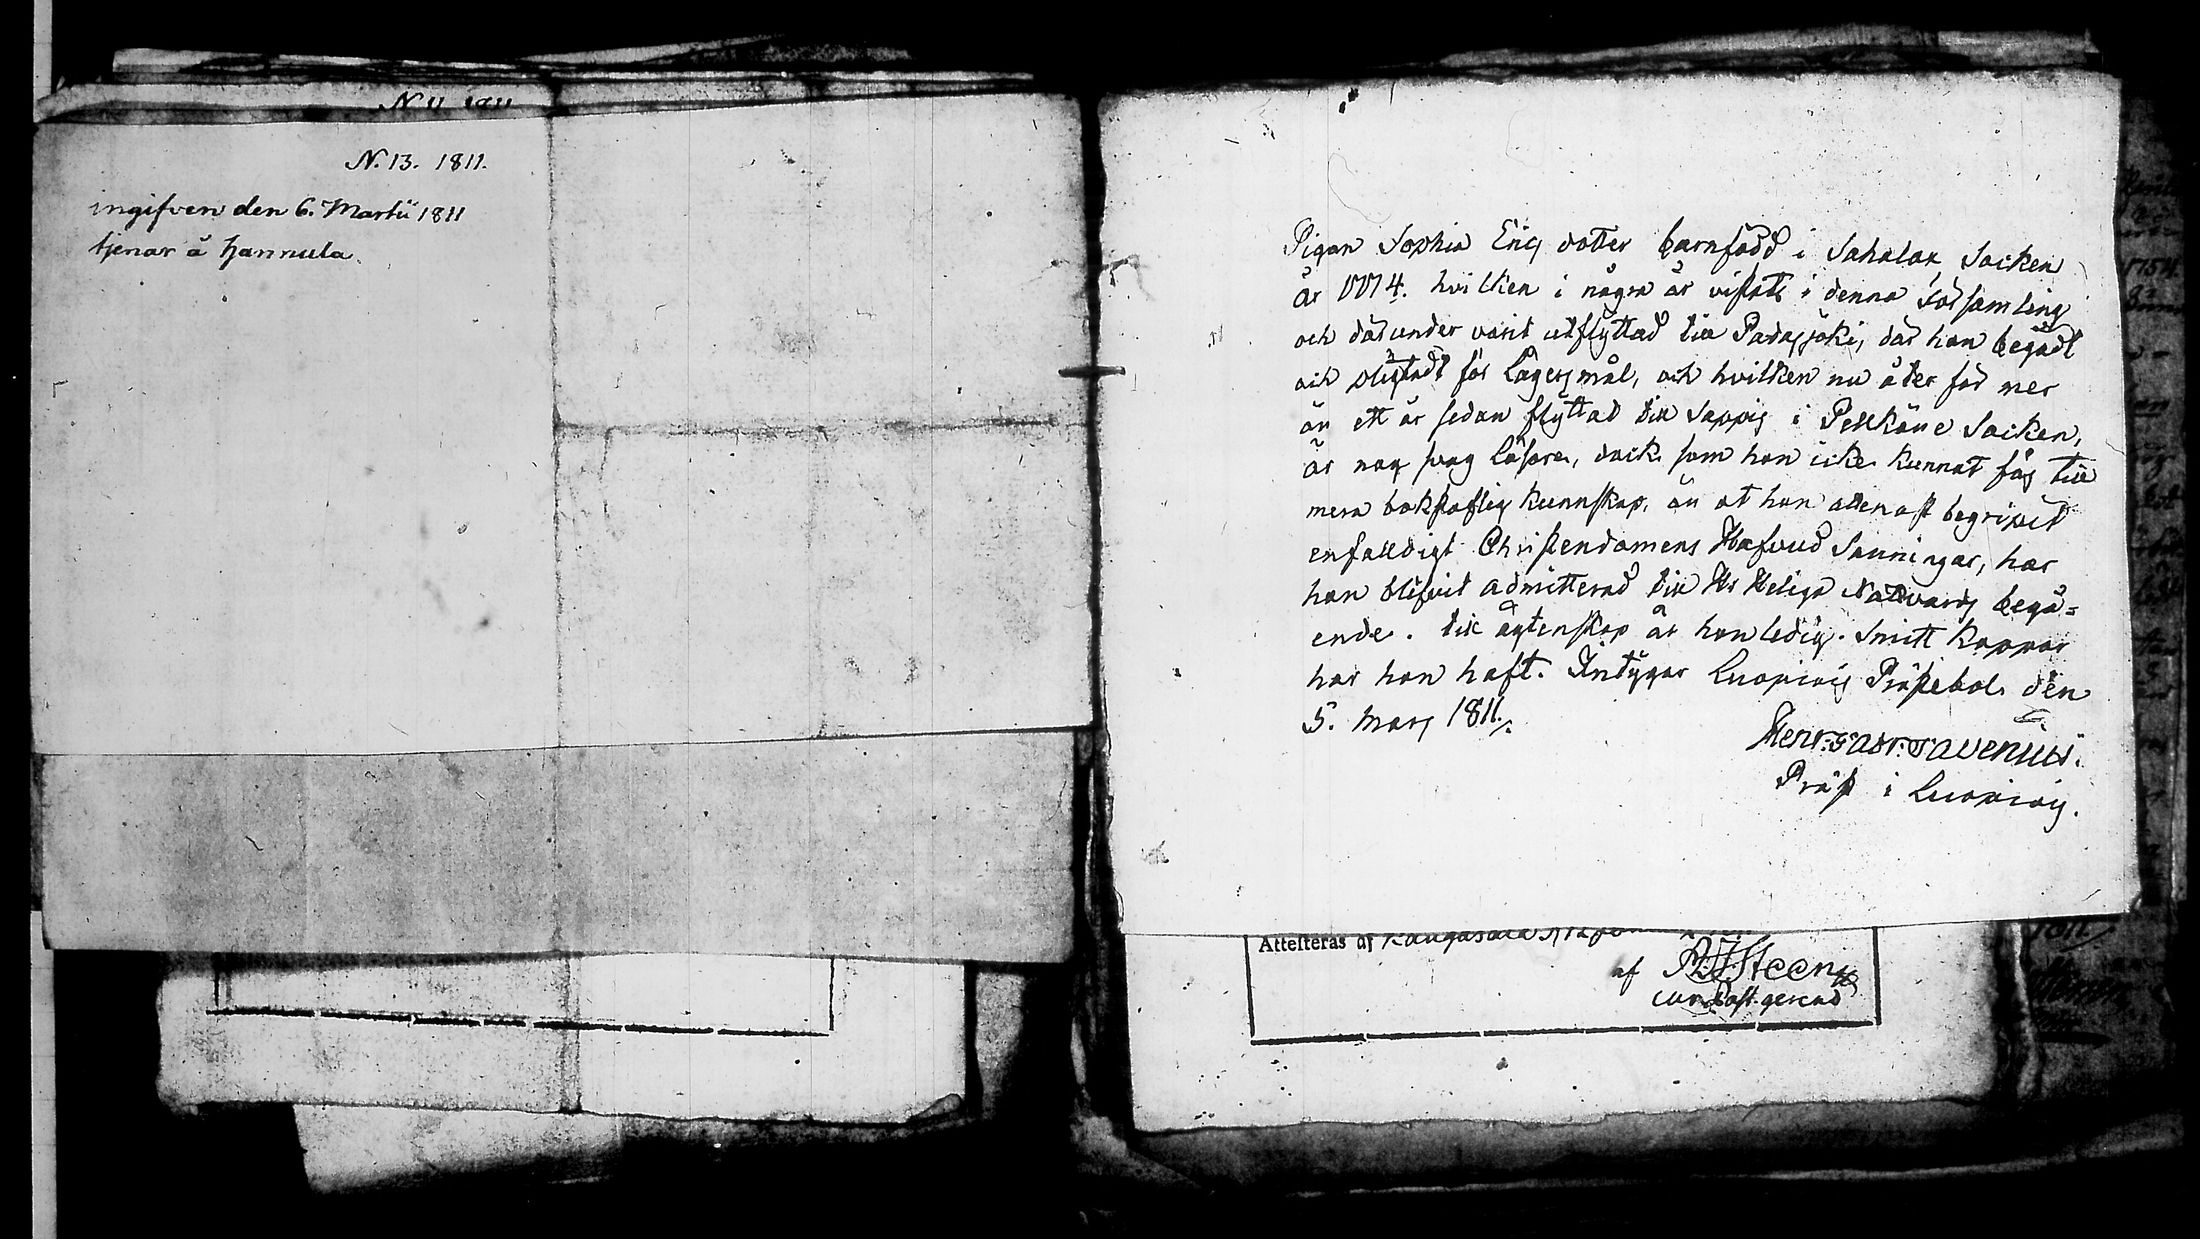 N. 11. 1811
N. 13. 1811.
ingifven den 6. Martii 1811
tjenar å Hannula.
Pigan Sophia Ericsdotter barnfödd i Sahalax Socken
år 1774. hvilken i några år vistats i denna Församling
och därunder varit utflyttad till Padasjoki, där hon begådt
och pligtadt för Lägersmål, och hvilken nu åter för mer
än ett år sedan flyttat till Sappis i Pelkäne Socken,
är nog svag Läsare, dock som hon icke kunnat fås till
mera bokstaflig kunnskap, än at hon allenast begripit
enfalldigt Christendomens Hufvud Sanningar, har
hon blifvit admitterad till Hs Heliga Nattvards begå=
ende. till ägtenskap är hon ledig. Smitt koppor
har hon haft. Intygar Luopiois Prästebol den
5. Mars 1811.
Henr: Gabr: Tavenius.
Präst i Luopiois.
Attesteras af Kangasala
af